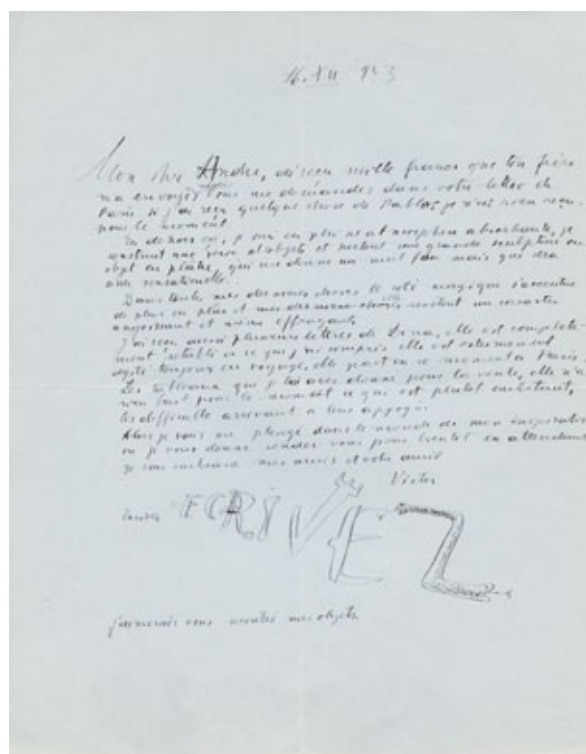 16. XII 943
Mon cher André, ai reçu mille francs que ton frère
m'a envoyé, vous me demandes dans votre lettre de
Paris si j'ai reçu quelque chose de Pablo, je n'ai rien reçu
pour le moment.
En dehors en, je suis en plein absorbante, je
construit une série d'objets et surtout une grande sculpture ou
objet en plâtre, qui me donne un mal fou mais qui sera
sensationelle.
Dans toutes mes dernières choses le coté magique s'accentue
de plus en plus et mes choses revêtent un caractère
angoissant et même effrayant.
J'ai reçu aussi plusieurs lettres de elle est complete-
ment rétabli en ce que j'ai compris elle est extremement
agité toujours en voyage, elle part en ce moment a Paris
Les tableaux que je lui avec donné pour la vente, elle n'a
rien fait pour le moment ce que est plutot embêtant,
les difficulté arrivant a leur appogé.
Alors je vais me plonge dans le monde de mon inspiration
ou je vous donne rendez vous pour bientôt en attendant
je vous embrasse mes amis et votre ami
Victor
ECRIVEZ
j'aimerais vous montré mes objets